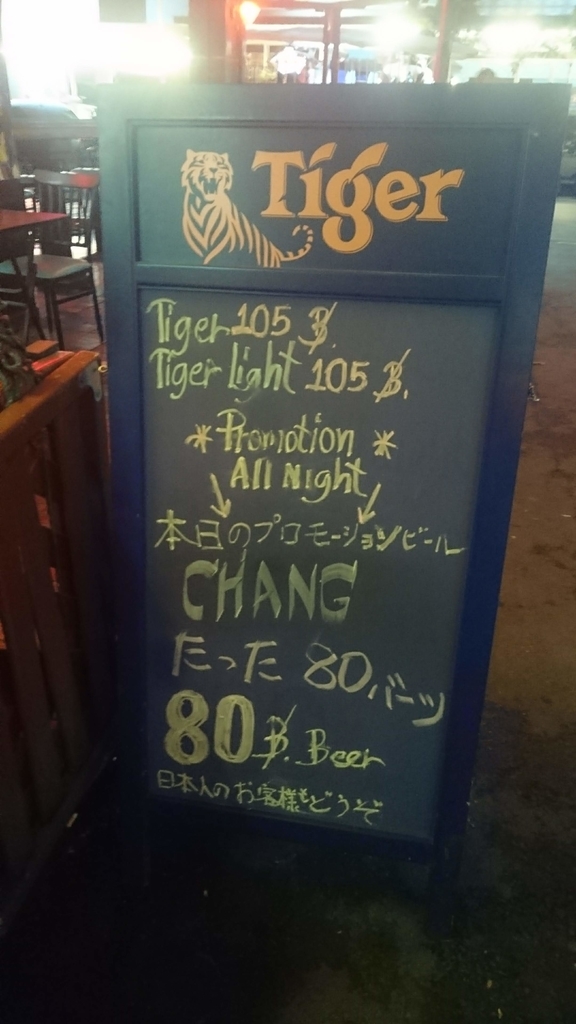 Tiger
Tiger 105 ฿.
Tiger light 105 ฿.
* Promotion *
All Night
本日のプロモーションビール
CHANG
たった 80バーツ
80 ฿. Beer
日本人のお客様もどうぞ